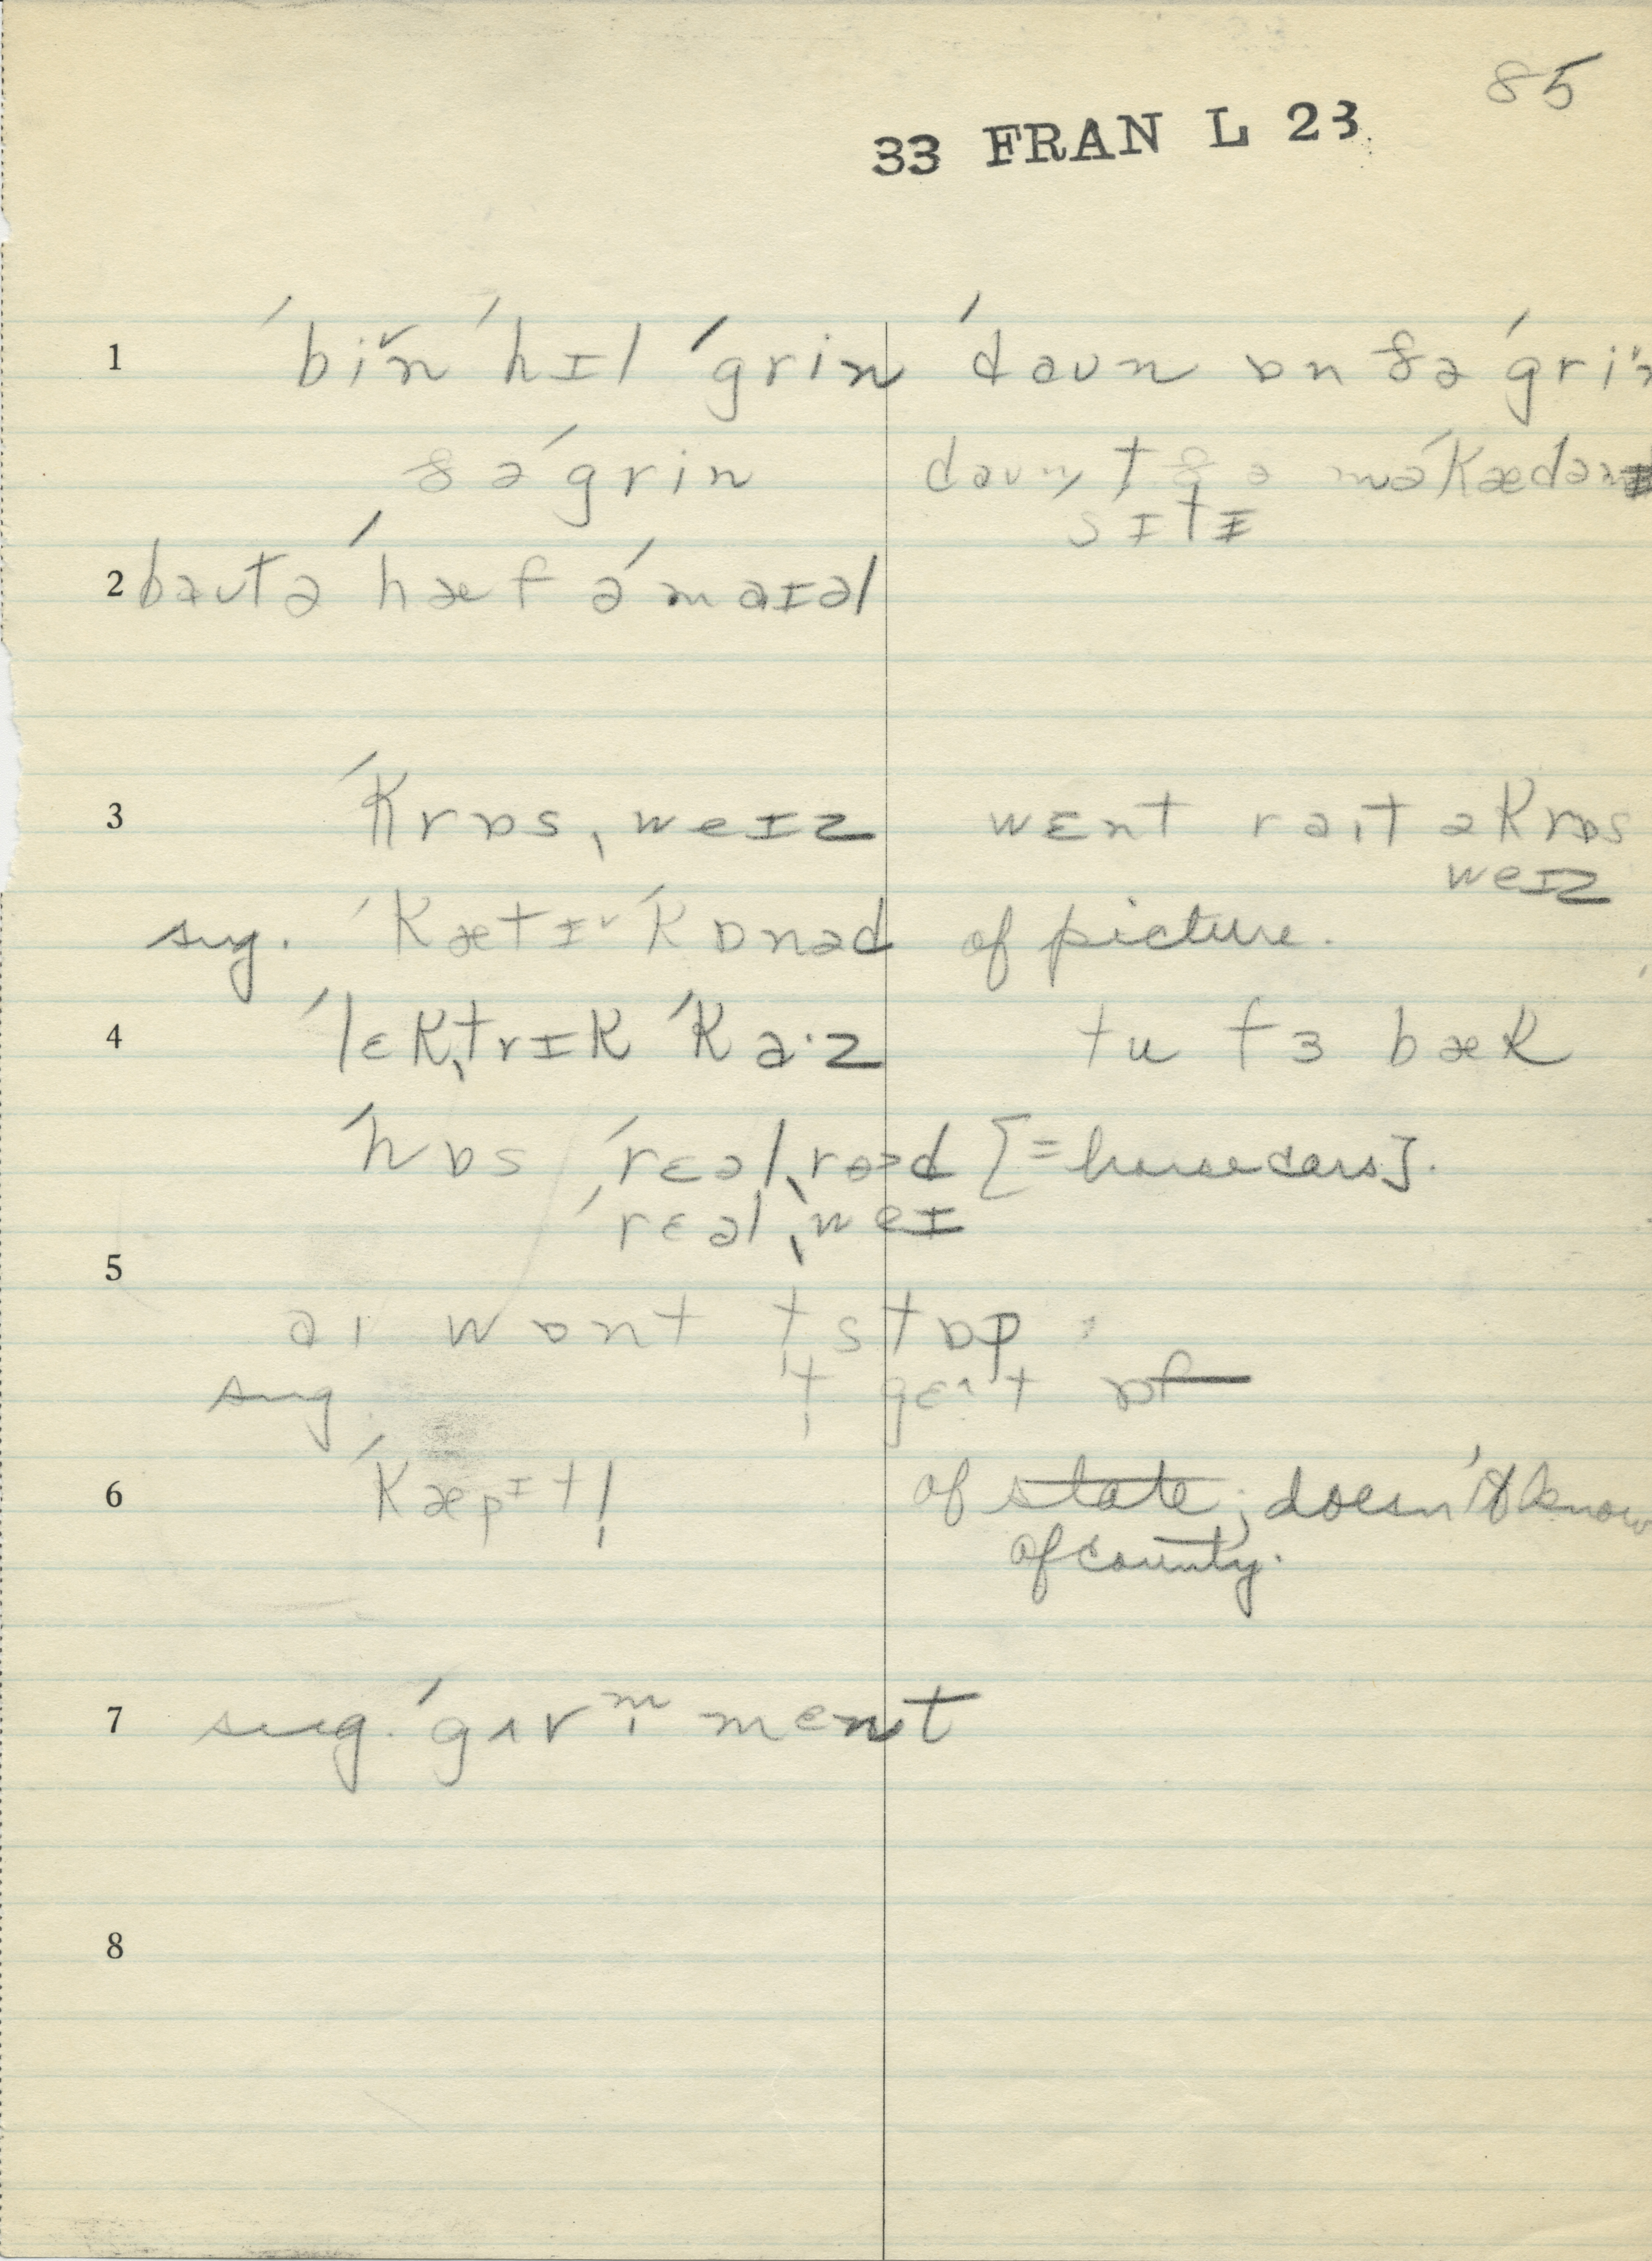 85
33 FRAN L 23
1 ˈbin ˈhɪl ˈgrin ˈdaʊn ɒn ðə ˈgri
ðə ˈgrin daʊn t ðə məˈkædəm
sɪtɪ
2 baʊt ə ˈhæf ə ˈmaɪəl
3 ˈkrɒsˌweɪz wɛnt raɪt əkrɒs
weɪz
sug. ˈkætɪ ˈkɒnəd of picture.
4 ˈlɛkˌtrɪk ˈka·z tu fɜ bæk
ˈhɒs ˈrɛəlˌroəd [=horse cars].
ˈrɛəlˌweɪ
5
aɪ wɒnt t stɒp
sug t gɛt ɒf
6 ˈkæpɪt! of state; doesn't know
of county.
7 sug. ˈgʌvm̩ment
8